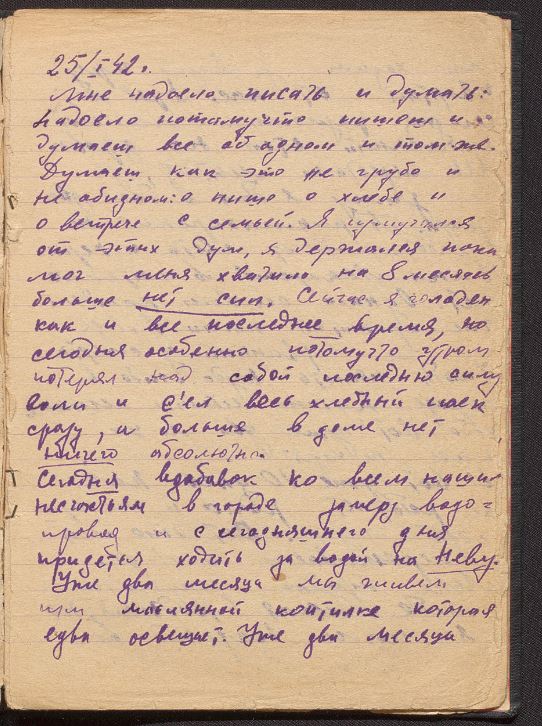 25/I 42.
Мне надоело писать и думать:
надоело потомучто пишеш и
думаеш все об одном и том-же.
Думаеш как это не грубо и
не обидном: о пище о хлебе и
о встрече с семьей. Я измучался
от этих дум, я держался пока
мог меня хватило на 8 месяцев
больше нет сил. Сейчас я голоден
как и все последнее время, но
сегодня особенно потомучто утром
потерял над собой последню силу
воли и с'ел весь хлебный паек
сразу, а больше в доме нет
ничего абсолютно.
Сегодня вдобавок ко всем нашим
несчастьям в городе замерз водо=
провод и с сегодняшнего дня
придеться ходить за водой на Неву.
Уже два месяца мы живем
при маслянной коптилке которая
едва освещает. Уже два месяца